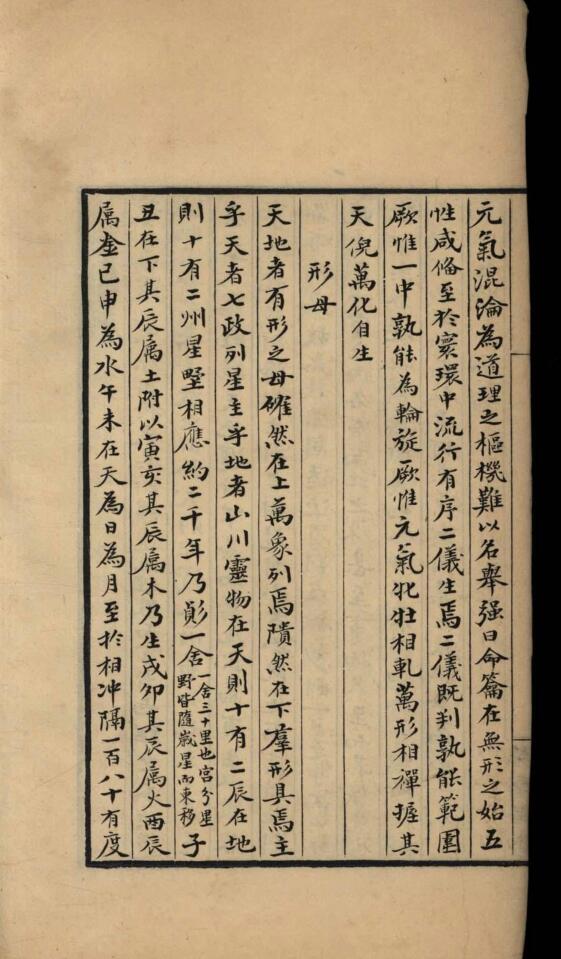 元氣混淪為道理之樞機難以名舉强曰命籥在無形之始五
性咸俻至於寰環中流行有序二儀生焉二儀既判孰能範圍
厥惟一中孰能為輪旋厥惟元氣牝牡相軋萬形相禪握其
天倪萬化自生
形母
天地者有形之母確然在上萬象列焉隤然在下羣形具焉主
乎天者七政列星主乎地者山川靈物在天則十有二辰在地
則十有二州星墅相應約二千年乃䠖一舍一舍三十里也宫分星野皆隨歲星而東移子
丑在下其辰属土附以寅亥其辰属木乃生戌卯其辰属火酉辰
属金巳申為水午未在天為日為月至於相冲隔一百八十有度